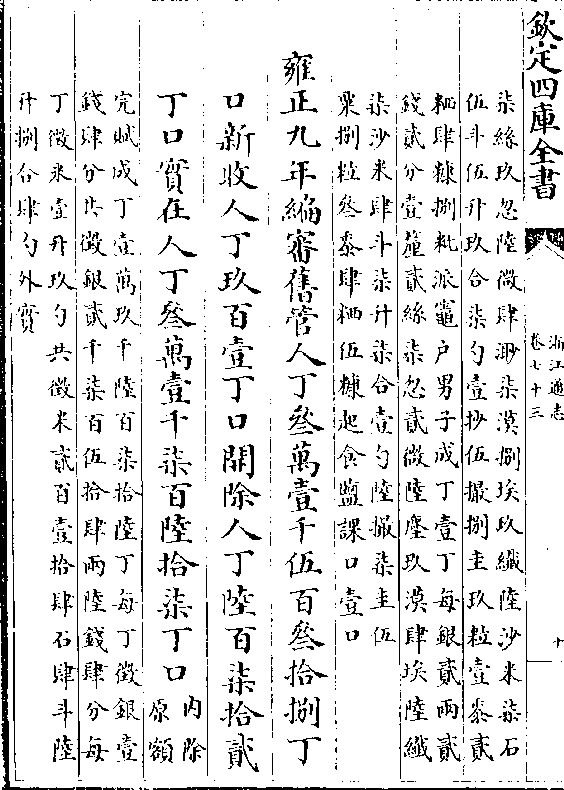 欽定四庫全書
浙江通志
卷七十三
十
柒絲玖忽陸微肆渺柒漠捌埃玖纖陸沙米柒石
伍斗伍升玖合柒勺壹抄伍撮捌圭玖粒壹黍貳
粞肆糠捌粃派竈户男子成丁壹丁每銀貳兩貳
錢貳分壹釐貳絲柒忽貳微陸塵玖漠肆埃陸纖
柒沙米肆斗柒升柒合壹勺陸撮柒圭伍
粟捌粒叁黍肆粞伍糠起食鹽課口壹口
雍正九年編審舊管人丁叁萬壹千伍百叁拾捌丁
口新收人丁玖百壹丁口開除人丁陸百柒拾貳
丁口實在人丁叁萬壹千柒百陸拾柒丁口內除
原額
完賦成丁壹萬玖千陸百柒拾陸丁每丁徵銀壹
錢肆分共徵銀貳千柒百伍拾肆兩陸錢肆分每
丁徵米壹升玖勺共徵米貳百壹拾肆石肆斗陸
升捌合肆勺外實